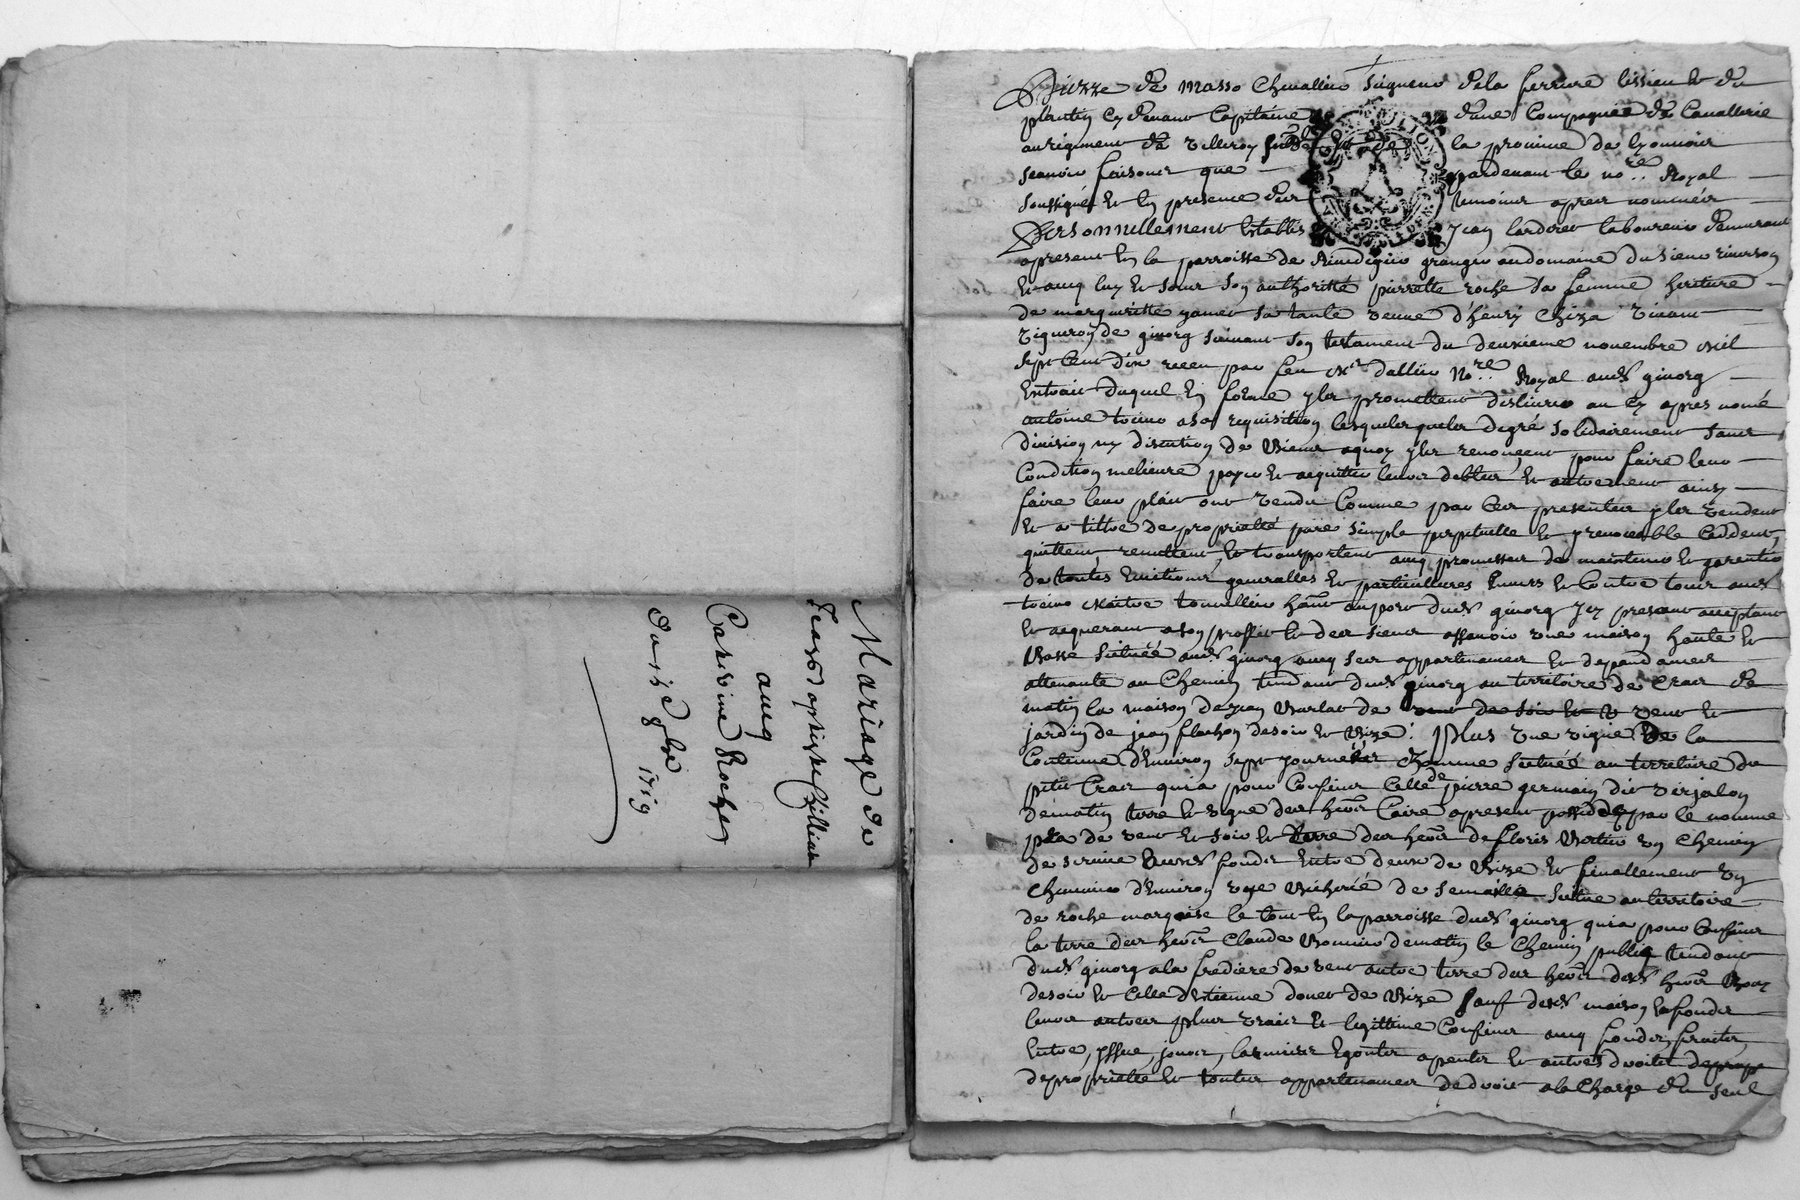 Mariage de
Jean Baptiste Gillier
aueq
Catherine Roche
Du 8bre 1719
Pierre de Masso Cheuallier seigneur de la ferriere lissieu et du
plantin cy deuant Capitaine d'une Compagnie de Cauallerie
au regiment de villeroy la prouince de lyonnois
scauoir faisons que pardeuant le nore Royal
soussigné et en presence des temoins apres nommés
Personnellement Establis jean larderet laboureur demeurant
apresent en la parroisse de granger au domaine du sieur
et aueq luy et sous son authoritté pierrette roche sa femme heritiere
de margueritte gamet sa tante veuue d'henry Chiza viuant
vigneron de giuorg suiuant son testament du deuxieme nouembre mil
sept cent dix receu par feu Mr dallier Nore Royal auds giuorg
Extrait duquel en forme yls promettent deslivrer au cy apres nomé
antoine a sa requisition lesquels de gré solidairement sans
diuision ny discution de biens a quoy yls renonçent pour faire leur
Condition melieure payer et acquitter leurs debtes et autrement ainsy
faire leur plait ont vendu Comme par ces presentes yls vendent
et a tiltre de proprietté pure simple perpetuelle et yreuocable Ceddent,
quittent, remettent, et transportent aueq promesse de maintenir et garentir
de toutes Euictions generalles et particullieres Enuers et Contre tous aud
Maitre tonnellier hant au port duds giuorg Icy present acceptant
et acquerant a son proffit et des siens assauoir une maison haute et
Basse scituée auds giuorg aueq ses appartenances et dependances
attenante au Chemin tendant duds giuorg au territoire de Crax de
matin la maison de jean Burlat de vent et
jardin de jean flachon de soir et Bize. Plus une vigne de la
Contenue d'Enuiron sept journées d'homme scituée au territoire du
petit Crax qui a pour Confins Celle de pierre germain dit verjalon
de matin terre et vigne des hers Caire apresent possidé par le nomme
de vent et soir et terre des hers de floris un Chemin
de seruice fonds Entre deux de Bize et finallement un
Chenauier d'Enuiron une Bicherée de semaille scitue au territoire
de roche margoise le tout en la parroisse duds giuorg qui a pour Confins
la terre des hers Claude Bonnier de matin le Chemin publiq tendant
duds giuorg a la fredière de vent autre terre des hers
de soir et Celle d'Etienne donet de Bize sauf desds maison et fonds
leurs autres plus vrais et legittime Confins aueq fonds, fruits,
Entre, yssue, jours, larmiers Egoutz apentis et autres droits
de proprietté et toutes appartenances de droit a la Charge du seul